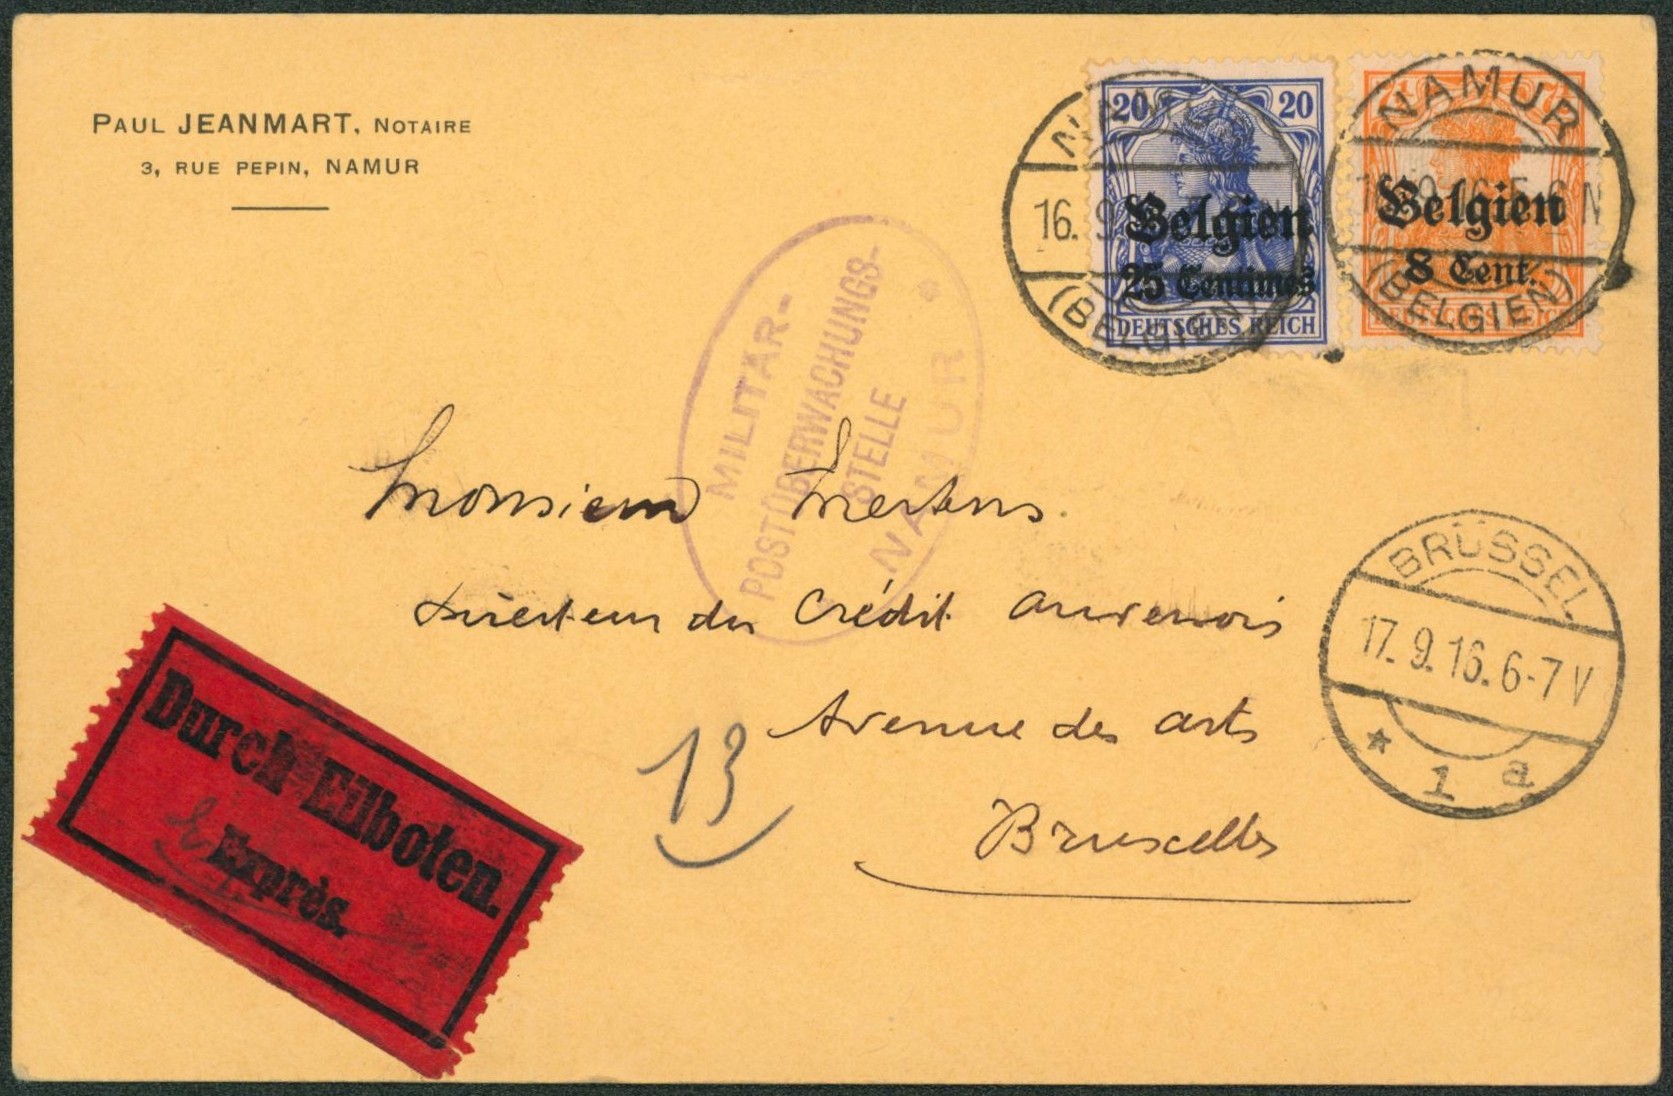 PAUL JEANMART, NOTAIRE
3, RUE PEPIN, NAMUR
20 20
Belgien
25 Centimes
DEUTSCHES REICH
Belgien
8 Cent.
DEUTSCHES REICH
NAMUR
16. 9
(BELGIEN)
NAMUR
16 5-6 N
(BELGIEN)
MILITÄR-
POSTÜBERWACHUNGS-
STELLE
NAMUR *
Monsieur Mertens
Directeur du Crédit Anversois
Avenue des arts
Bruxelles
13
BRÜSSEL
17. 9. 16. 6-7 V
* 1 a
Durch Eilboten.
Exprès.